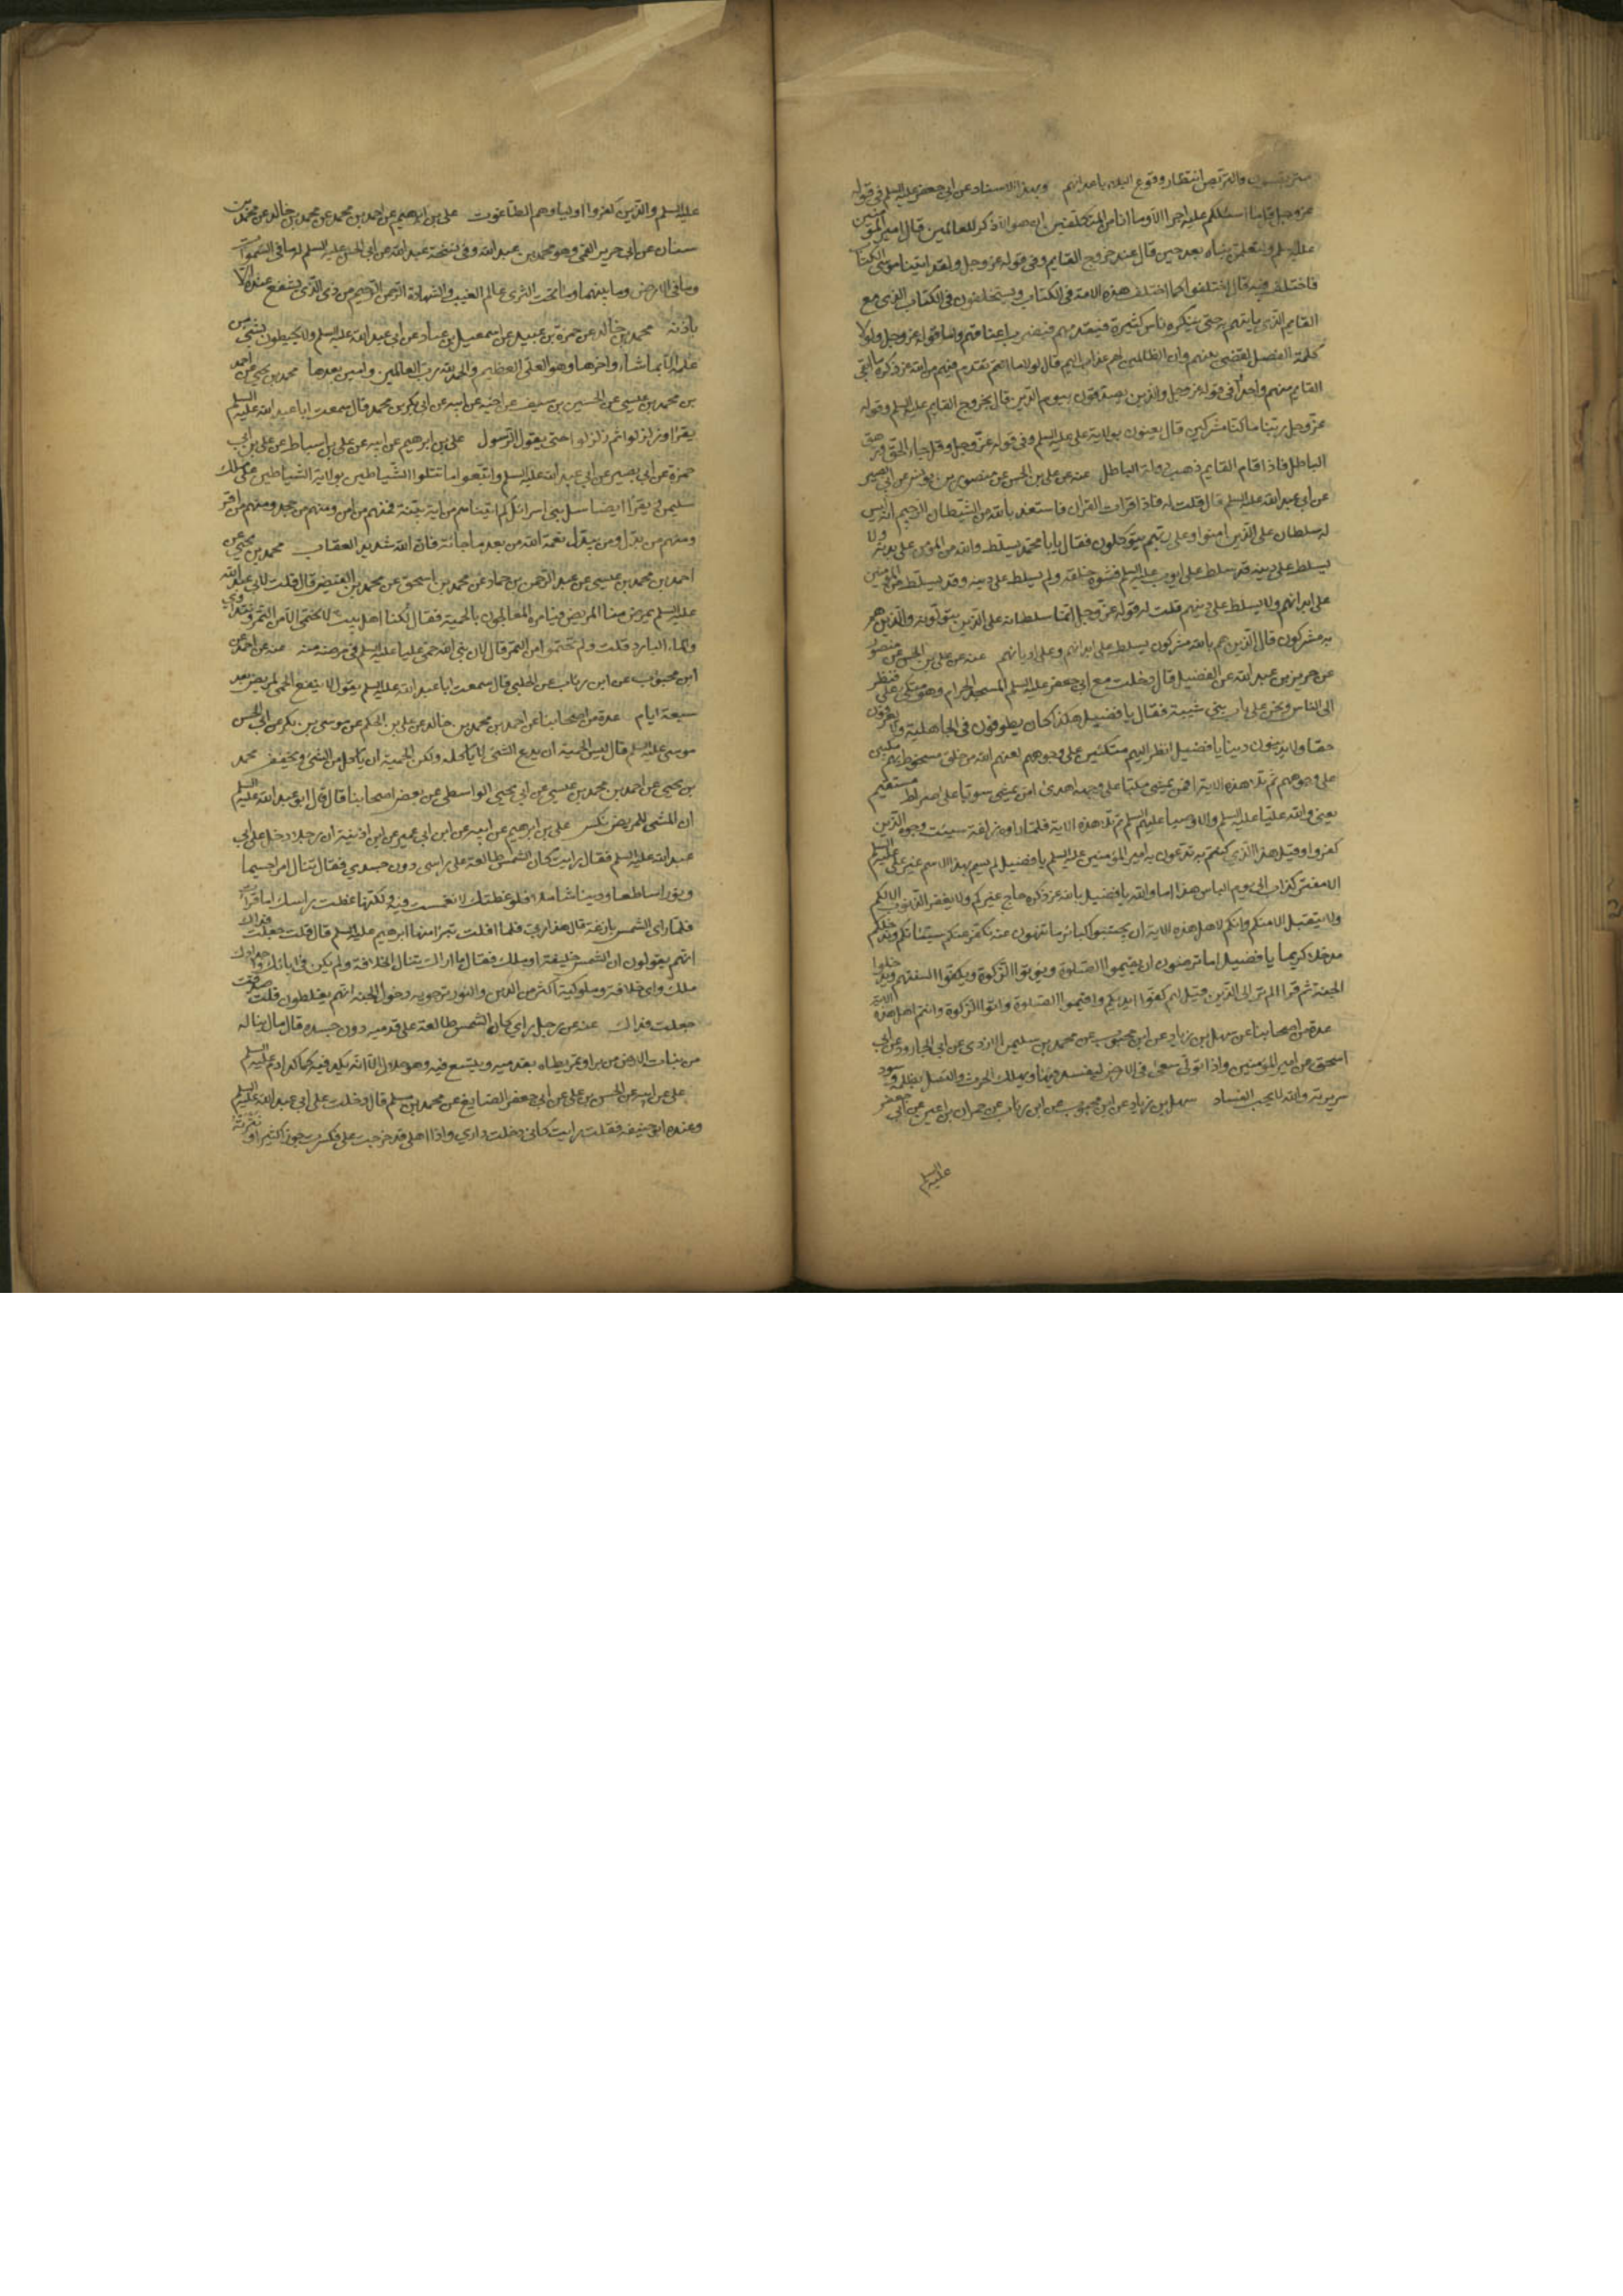 متربصون والتربص انتظار وقوع البلاء باعدائهم وبهذا الاسناد عن ابي جعفر عليه السلم في قوله
عز وجل قل ما اسئلكم عليه من اجر وما انا من المتكلفين ان هو الا ذكر للعالمين قال امير المؤمنين
عليه السلم ولتعلمن نباه بعد حين قال عند خروج القايم وفي قوله عز وجل ولقد اتينا موسى الكتاب
فاختلف فيه قال اختلفوا كما اختلف هذه الامة في الكتاب وسيختلفون في الكتاب الذي مع
القايم الذي ياتيهم به حتى ينكره ناس كثيرة فيقدمهم فيضرب اعناقهم واما قوله عز وجل ولولا
كلمة الفصل لقضي بينهم وان الظالمين لهم عذاب اليم قال لولا ما تقدم فيهم من الله عز ذكره ما ابقى
القايم منهم واحدا وفي قوله عز وجل والذين يصدقون بيوم الدين قال بخروج القايم عليه السلم وقوله
عز وجل ربنا ما كنا مشركين قال يعنون بولاية علي عليه السلم وفي قوله عز وجل وقل جاء الحق وزهق
الباطل قال اذا قام القايم ذهب دولة الباطل عنه عن علي بن الحسن عن منصور بن يونس عن ابي بصير
عن ابي عبد الله عليه السلم قال قلت له فاذا قرات القران فاستعذ بالله من الشيطان الرجيم انه ليس
له سلطان على الذين امنوا وعلى ربهم يتوكلون فقال يابا محمد يسلط والله من المؤمن على بدنه ولا
يسلط على دينه قد سلط على ايوب عليه السلم فشوه خلقه ولم يسلط على دينه وقد يسلط من المؤمنين
على ابدانهم ولا يسلط على دينهم قلت له قوله عز وجل انما سلطانه على الذين يتولونه والذين هم
به مشركون قال الذين هم بالله مشركون يسلط على ابدانهم وعلى اديانهم عنه عن علي بن الحسن عن منصور
عن حريز بن عبد الله عن الفضيل قال دخلت مع ابي جعفر عليه السلم المسجد الحرام وهو متكئ علي فنظر
الى الناس ونحن على باب بني شيبة فقال يا فضيل هكذا كان يطوفون في الجاهلية لا يعرفون
حقا ولا يدينون دينا يا فضيل انظر اليهم مكبين على وجوههم لعنهم الله من خلق مسخور بهم مكبين
على وجوههم ثم تلا هذه الاية افمن يمشي مكبا على وجهه اهدى امن يمشي سويا على صراط مستقيم
يعني والله عليا عليه السلم والاوصيا عليهم السلم ثم تلا هذه الاية فلما راوه زلفة سيئت وجوه الذين
كفروا وقيل هذا الذي كنتم به تدعون امير المؤمنين عليه السلم يا فضيل لم يتسم بهذا الاسم غير علي عليه السلم
الا مفتر كذاب الى يوم الباس هذا اما والله يا فضيل ما لله عز ذكره حاج غيركم ولا يغفر الذنوب الا لكم
ولا يتقبل الا منكم وانكم لاهل هذه الاية ان تجتنبوا كبائر ما تنهون عنه نكفر عنكم سيئاتكم وندخلكم
مدخلا كريما يا فضيل اما ترضون ان تقيموا الصلوة وتؤتوا الزكوة وتكفوا السنتكم وتدخلوا
الجنة ثم قرا الم تر الى الذين قيل لهم كفوا ايديكم واقيموا الصلوة واتوا الزكوة وانتم اهل هذه الاية
عدة من اصحابنا عن سهل بن زياد عن ابن محبوب عن محمد بن سليمن الازدي عن ابي الجارود عن ابي
اسحق عن امير المؤمنين واذا تولى سعى في الارض ليفسد فيها ويهلك الحرث والنسل بظلمه وسوء
سريرته والله لا يحب الفساد سهل بن زياد عن ابن محبوب عن ابن رئاب عن حمران بن اعين عن ابي جعفر
عليه السلم
عليه السلم والذين كفروا اولياؤهم الطاغوت علي بن ابرهيم عن احمد بن محمد عن محمد بن خالد عن محمد بن
سنان عن ابي جرير القمي وهو محمد بن عبيد الله وفي نسخة عبد الله عن ابي الحسن عليه السلم له ما في السموات
وما في الارض وما بينهما وما تحت الثرى عالم الغيب والشهادة الرحمن الرحيم من ذي الذي يشفع عنده الا
باذنه محمد بن خالد عن حمزة بن عبيد عن اسمعيل بن عباد عن ابي عبد الله عليه السلم ولا يحيطون بشيء من
علمه الا بما شاء واخرها وهو العلي العظيم والحمد لله رب العالمين وايتين بعدها محمد بن يحيى عن احمد
بن محمد بن عيسى عن الحسين بن سيف عن اخيه عن ابيه عن ابي بكر بن محمد قال سمعت ابا عبد الله عليه السلم
يقرا وزلزلوا ثم زلزلوا حتى يقول الرسول علي بن ابرهيم عن ابيه عن علي بن اسباط عن علي بن ابي
حمزة عن ابي بصير عن ابي عبد الله عليه السلم واتبعوا ما تتلوا الشياطين بولاية الشياطين على ملك
سليمن ويقرا ايضا سل بني اسرائل كم اتيناهم من اية بينة فمنهم من امن ومنهم من جحد ومنهم من اقر
ومنهم من بدل ومن يبدل نعمة الله من بعد ما جائته فان الله شديد العقاب محمد بن يحيى عن
احمد بن محمد بن عيسى عن عبد الرحمن بن حماد عن محمد بن اسحق عن محمد بن الفيض قال قلت لابي عبد الله
عليه السلم يمرض منا المريض فيامره المعالجون بالحمية فقال لكنا اهل بيت لا نحتمي الا من التمر ونتداوى
والماء البارد قلت ولم تحتموا من التمر قال لان نبي الله حمى عليا عليه السلم في مرضه منه عنه عن احمد عن
ابن محبوب عن ابن رئاب عن الحلبي قال سمعت ابا عبد الله عليه السلم يقول لا ينفع الحمى لمريض بعد
سبعة ايام عدة من اصحابنا عن احمد بن محمد بن خالد عن علي بن الحكم عن موسى بن بكر عن ابي الحسن
موسى عليه السلم قال ليس الحمية ان يدع الشئ لا ياكله ولكن الحمية ان ياكل من الشئ ويخفف محمد
بن يحيى عن احمد بن محمد بن عيسى عن ابي يحيى الواسطي عن بعض اصحابنا قال قال ابو عبد الله عليه السلم
ان المشي للمريض نكس علي بن ابرهيم عن ابيه عن ابن ابي عمير عن ابن اذينة ان رجلا دخل على ابي
عبد الله عليه السلم فقال رايت كان الشمس طالعة على راسي دون جسدي فقال تنال امرا جسيما
ونورا ساطعا ودينا شاملا فلو غطتك لانغمست فيه ولكنها غطت راسك اما قرات
فلما راى الشمس بازغة قال هذا ربي فلما افلت تبرا منها ابرهيم عليه السلم قال قلت جعلت فداك
انهم يقولون ان الشمس خليفة او ملك فقال ما اراك تنال الخلافة ولم يكن في ابائك واجدادك
ملك واي خلافة وملوكية اكثر من الدين والنور ترجو به دخول الجنة انهم يغلطون قلت صدقت
جعلت فداك عنه عن رجل راى كان الشمس طالعة على قدميه دون جسده قال مال يناله
من نبات الارض من بر او تمر يطاه بقدميه ويتسع فيه وهو حلال الا انه يكد فيه كما كد ادم عليه السلم
علي عن ابيه عن الحسن بن علي عن ابي جعفر الصايغ عن محمد بن مسلم قال دخلت على ابي عبد الله عليه السلم
وعنده ابو حنيفة فقلت رايت كاني دخلت داري واذا اهلي قد خرجت علي فكسرت جوزا كثيرا ونثرته